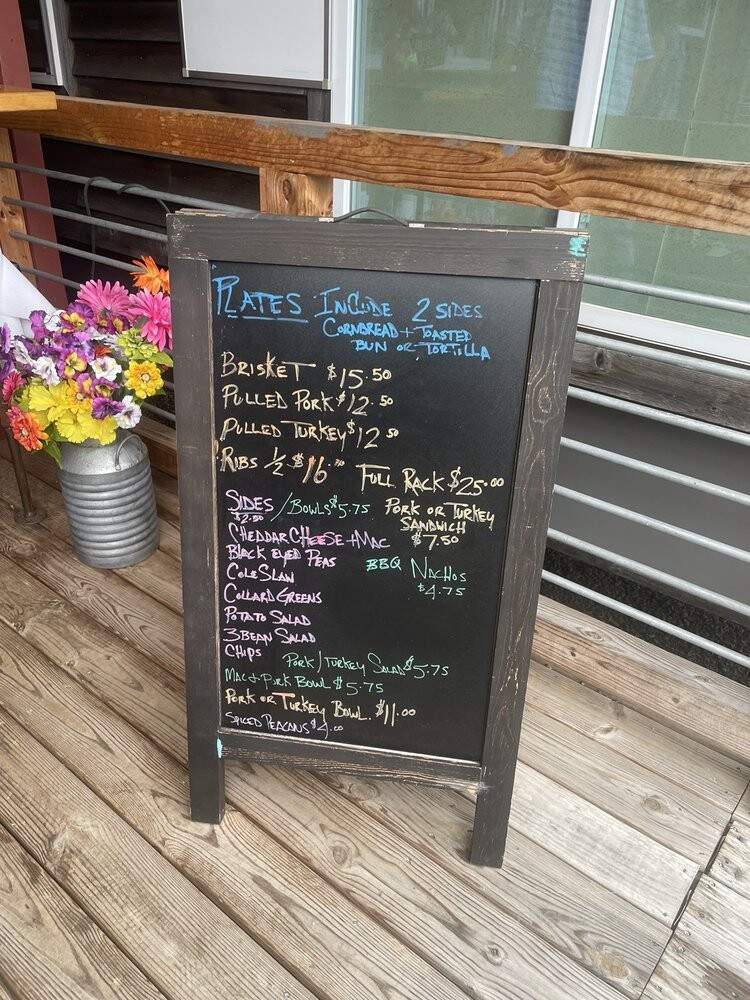 PLATES INCLUDE 2 SIDES
CORNBREAD + TOASTED
BUN OR TORTILLA
BRISKET $15.50
PULLED PORK $12.50
PULLED TURKEY $12.50
RIBS 1/2 $16.00 FULL RACK $25.00
SIDES / BOWLS $5.75
$2.50
PORK OR TURKEY
SANDWICH
$7.50
CHEDDAR CHEESE + MAC
BLACK EYED PEAS
BBQ NACHOS
$4.75
COLE SLAW
COLLARD GREENS
POTATO SALAD
3 BEAN SALAD
CHIPS
PORK/TURKEY SALAD $5.75
MAC + PORK BOWL $5.75
PORK OR TURKEY BOWL. $11.00
SPICED PEACANS $4.00